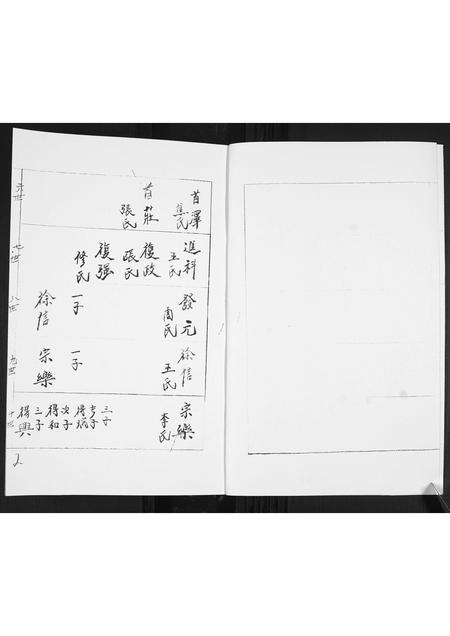 六世
首澤
焦氏
首莊
張氏
七世
進科
王氏
復政
張氏
復强
修氏
八世
發元
周氏
一子
徐信
九世
徐信
王氏
一子
宗樂
十世
宗樂
李氏
三子
長子
得瑸
次子
得和
三子
得興
2